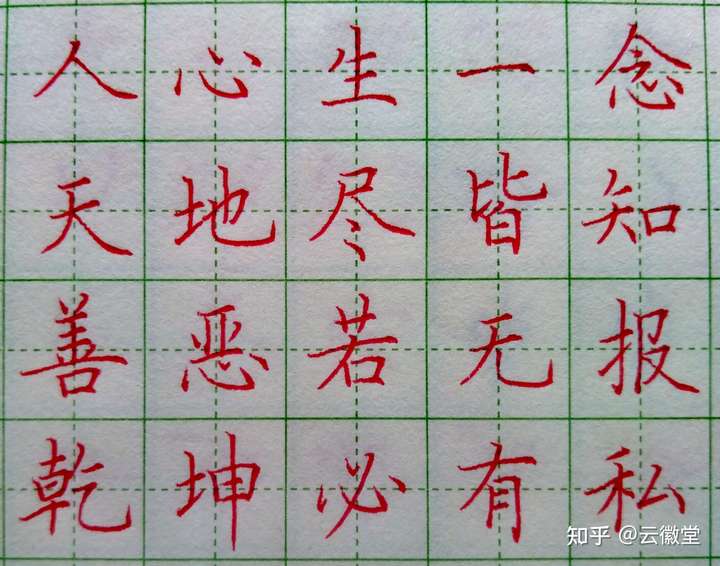 人心生一念
天地尽皆知
善恶若无报
乾坤必有私
知乎 @云徽堂